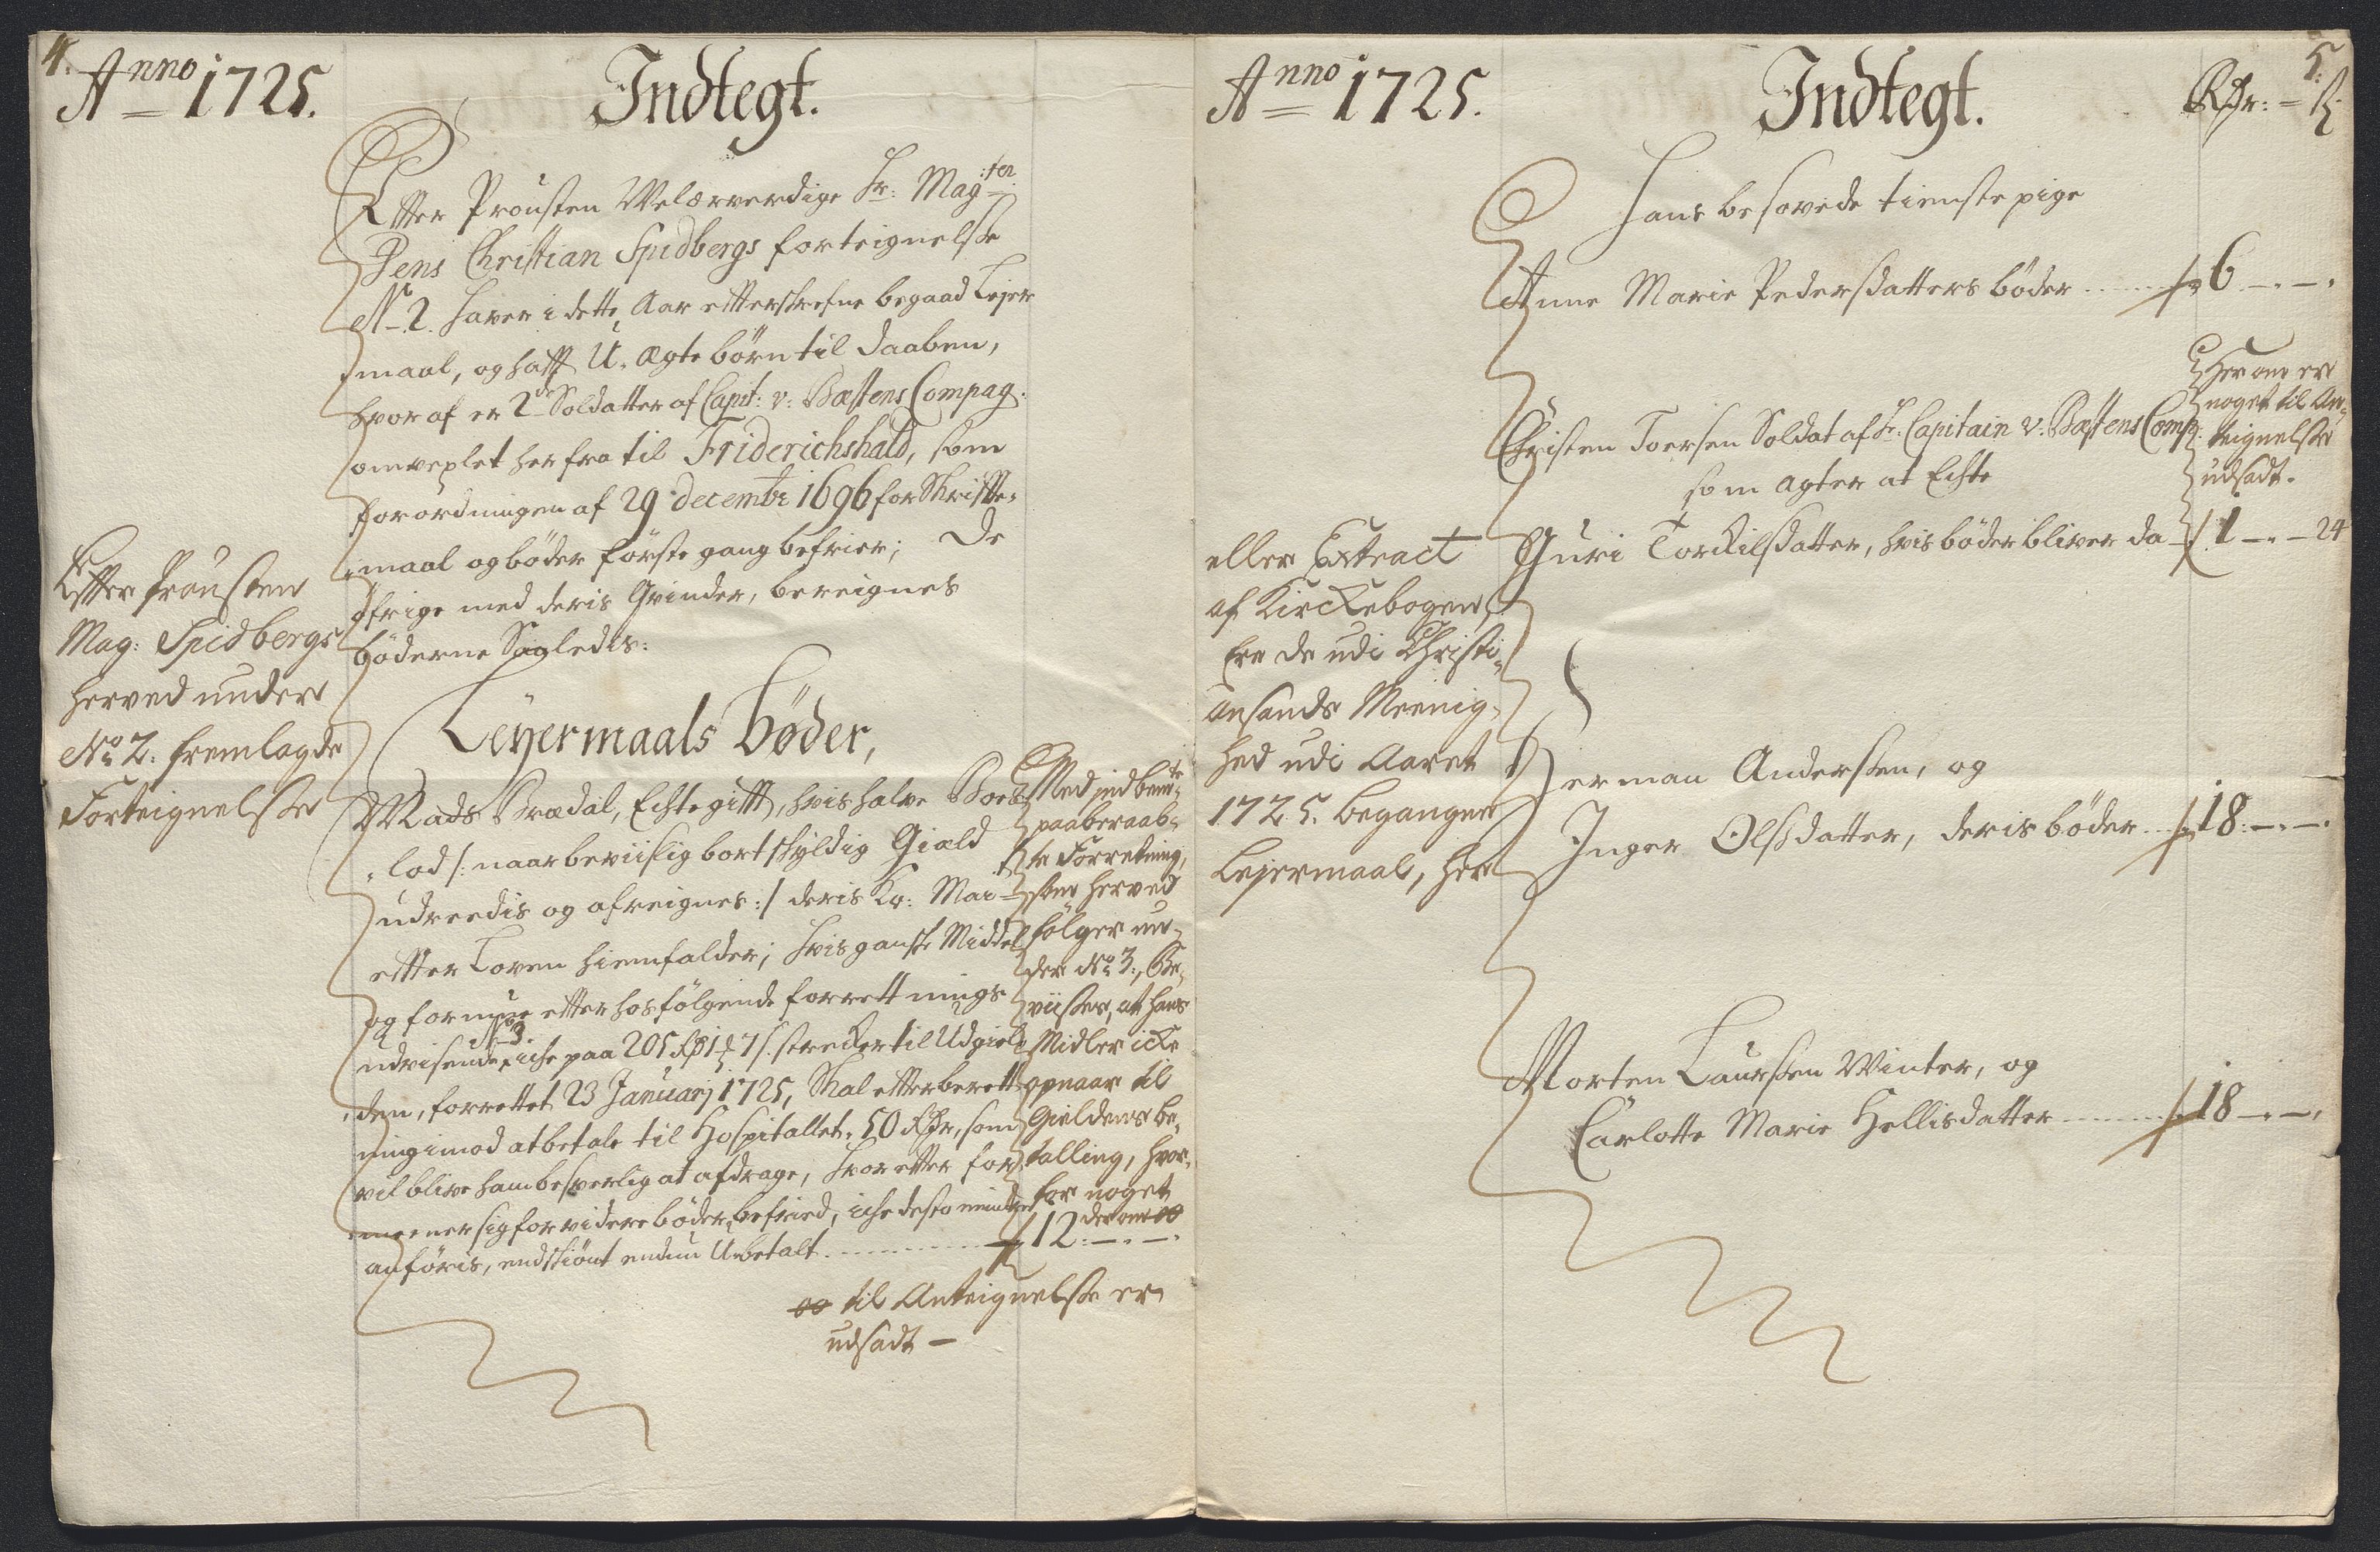 4.
Anno 1725.
Indtegt.
Efter Prousten Welærværdige Hr: Mag:ter
Jens Christian Spidbergs forteignelse
No 2. haver i dette Aar efterskrefne begaad Lejer
maal, og hafft U-ægte børn til daaben,
hvor af er 2de Soldatter af Capit: v: Bæstens Compag:
omvexlet her fra til Friderichshald, som
forordningen af 29 decembr 1696 for Skrifte-
maal og bøder første gang befrier; De
øfrige med deris Qvinder, bereignes
bøderne Saaledis:
Efter Prousten
Mag: Spidbergs
herved under
No 2. fremlagde
Forteignelsse
Leyermaals bøder,
Mads Brædal, Echtegifft, hvis halve Boes
lod /: naar beviislig bortskyldig Giæld
udreedis og afreignes :/ deris Ko: Mai
efter Loven hiemfalder; hvis ganske Middel
og formue efter hosfølgende forrettnings
No 3.
udvisende, iche paa 205 Rd 1 7 s. strecker til Udgield
den, forrettet 23 Januarj 1725, Skal efter berett
ning imod at betale til Hospitallet, 50 Rdr, som
vil blive ham besverlig at afdrage, hvor efter for
meener sig for videre bøder befried, iche desto mindre
anføris, endskiønt endnu Ubetalt 12:-.-.
Med indbem:te
paaberaab-
te Forretning,
som herved
følger un-
der No 3:, Be-
viisses, at hans
Midler icke
opnaar til
Gieldens be-
talling, hvor-
for noget
derom oo
oo til Anteignelsse er
udsadt -
5.
Anno 1725.
Indtegt.
Rdr: - s
Hans besovede tienstepige
Anne Marie Pedersdatters bøder 6 -.-.
Herom er
noget til An-
teignelsse
udsadt.
Christen Toersen Soldat af Hr. Capitain v: Bæstens Comp:
som agter at Echte
Guri Torkilsdatter, hvis bøder bliver da 1 -.- 24
eller Extract
af Kirckebogen,
Ere de udi Christi-
ansands Meenig-
hed udi Aaret
1725. begangen
Lejermaal, her
Herman Andersen, og
Inger Olsdatter, deris bøder 18:-.-.
Morten Laursen Winter, og
Carlotte Marie Hellisdatter 18 -.-.